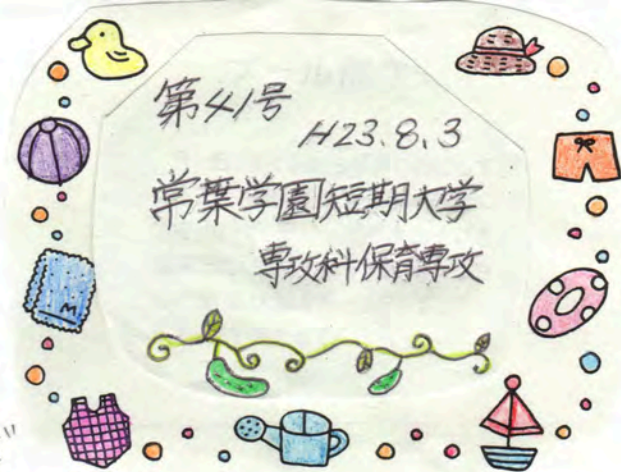 第41号
H23.8.3
常葉学園短期大学
専攻科保育専攻
M